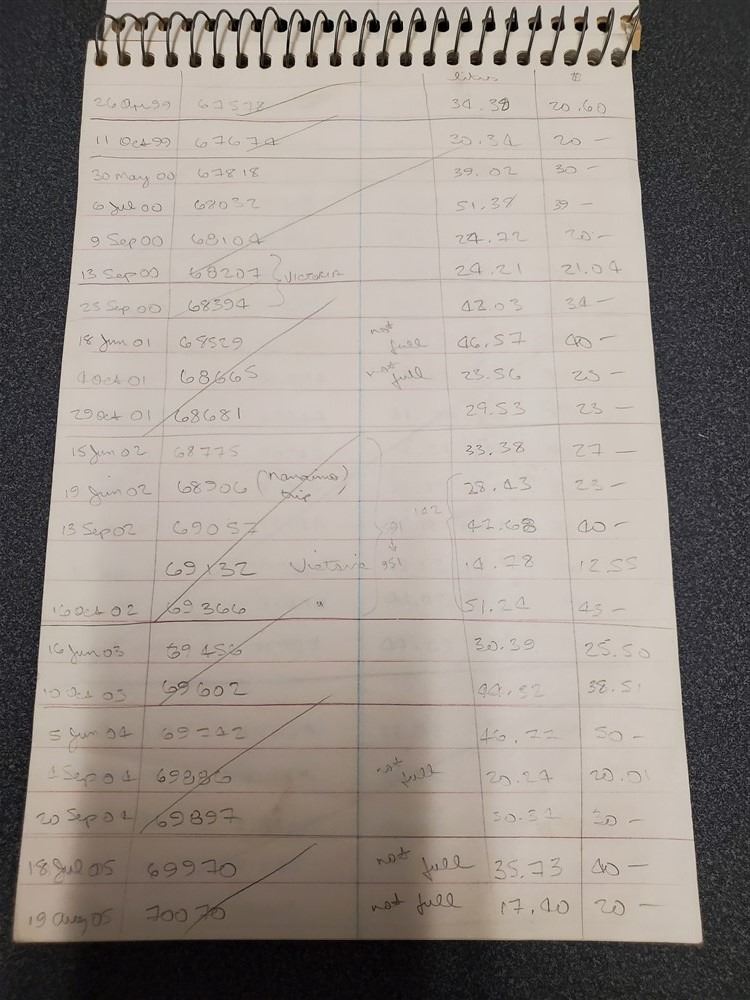 litres $
26 Apr 99 67578 34.38 20.60
11 Oct 99 67674 30.34 20 —
30 May 00 67818 39.02 30 —
6 Jul 00 68032 51.38 39 —
9 Sep 00 68104 24.72 20 —
13 Sep 00 68207 } VICTORIA 24.21 21.04
25 Sep 00 68394 42.03 34 —
18 Jun 01 68529 not full 46.57 40 —
4 Oct 01 68665 not full 23.56 20 —
29 Oct 01 68681 29.53 23 —
15 Jun 02 68775 33.38 27 —
19 Jun 02 68906 (Nanaimo trip) 28.43 23 —
13 Sep 02 69057 142 47.68 40 —
69132 Victoria 951 14.78 12.55
16 Oct 02 69366 " 51.24 43 —
16 Jun 03 69456 30.39 25.50
10 Oct 03 69602 44.32 38.51
5 Jun 04 69742 46.77 50 —
4 Sep 04 69886 not full 20.24 20.01
20 Sep 04 69897 30.31 30 —
18 Jul 05 69970 not full 35.73 40 —
19 Aug 05 70070 not full 17.40 20 —